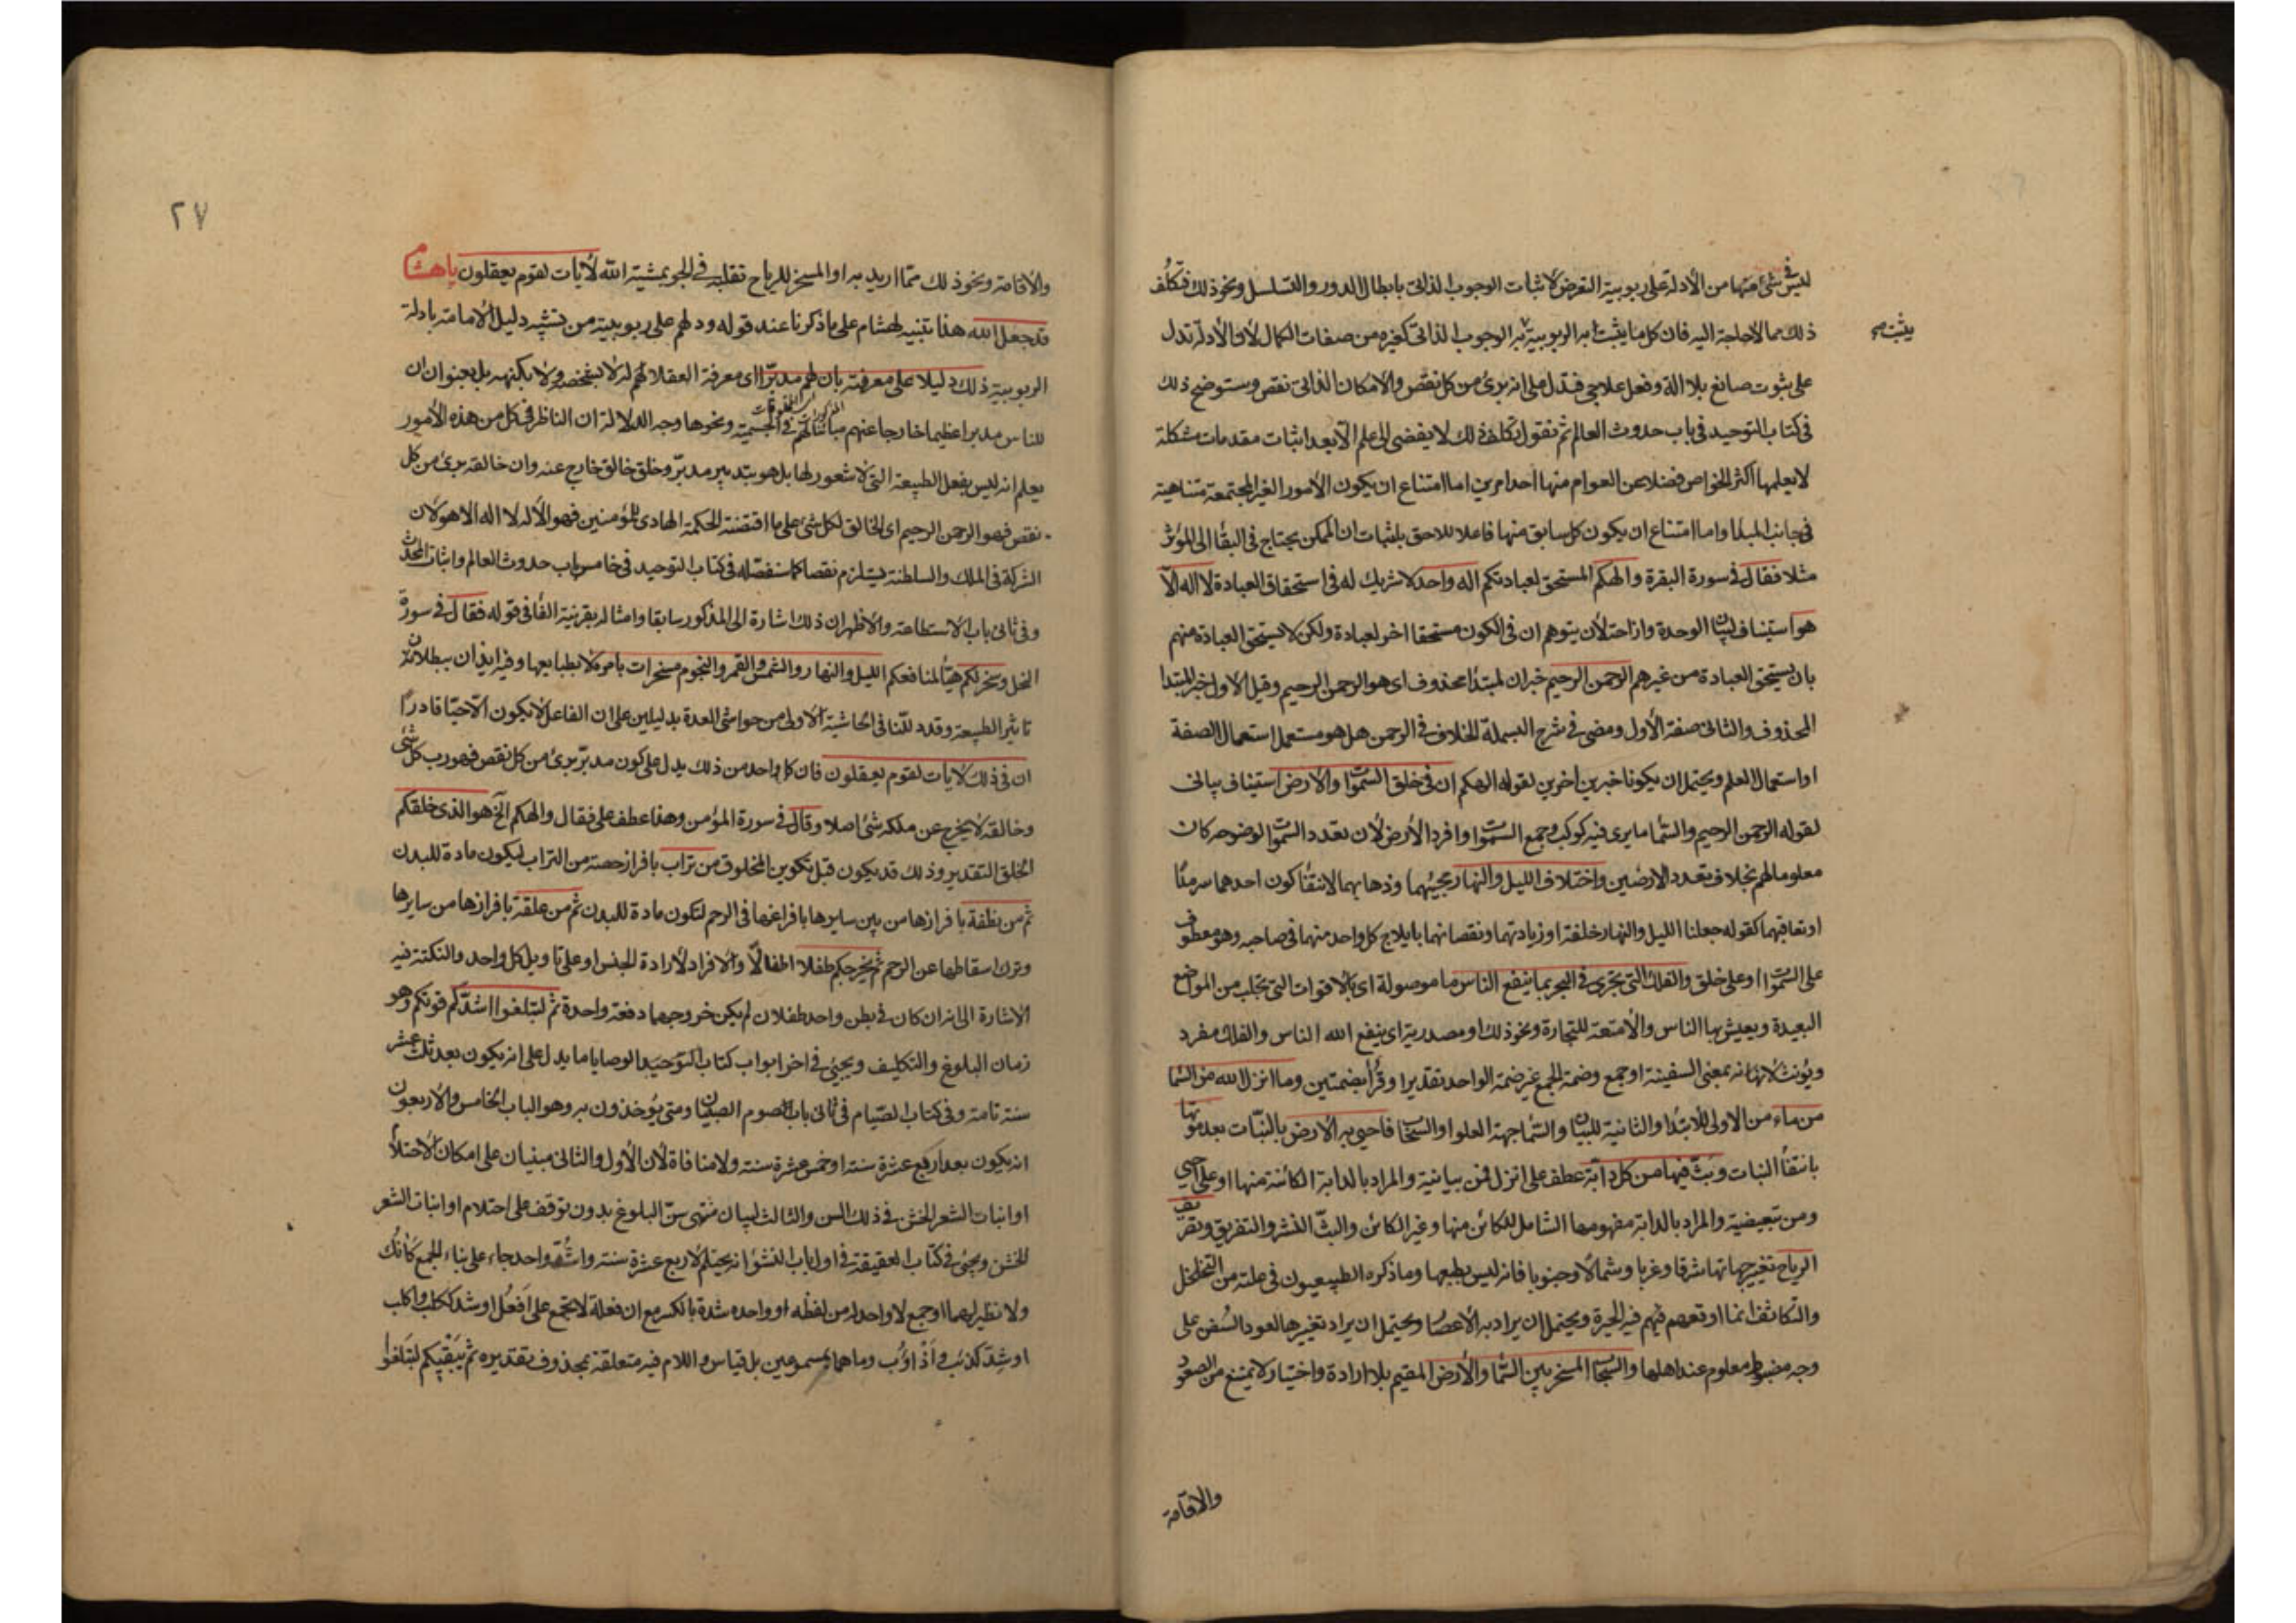 ليس في شئ منها من الأدلة على ربوبية التعرض لاثبات الوجوب الذاتي بابطال الدور والتسلسل ونحو ذلك فتكلف
ذلك مما لا حاجة اليه فان كل ما يثبت به الربوبية يثبت به الوجوب الذاتي كغيره من صفات الكمال لان الأدلة تدل
يثبت صح
على ثبوت صانع بلا الة وفعل علاجي فتدل على انه برئ من كل نقص والامكان الذاتي نقص وستوضح ذلك
في كتاب التوحيد في باب حدوث العالم ثم نقول تكلف ذلك لا يفضى الى علم الا بعد اثبات مقدمات مشكلة
لا يعلمها اكثر الخواص فضلا عن العوام منها احد امرين اما امتناع ان يكون الأمور الغير المجتمعة متناهية
في جانب المبدا واما امتناع ان يكون كل سابق منها فاعلا للاحق باثبات ان الممكن يحتاج في البقا الى المؤثر
مثلا فقال في سورة البقرة والهكم المستحق لعبادتكم اله واحد لا شريك له في استحقاق العبادة لا اله الا
هو استيناف لبيان الوحدة وازاحة لأن يتوهم ان في الكون مستحقا اخر لعبادة ولكن لا يستحق العبادة منهم
بان يستحق العبادة من غيرهم الرحمن الرحيم خبران لمبتدا محذوف اى هو الرحمن الرحيم وقيل الاول خبر المبتدا
المحذوف والثاني صفة الأول ومضى في شرح البسملة الخلاف في الرحمن هل هو مستعمل استعمال الصفة
او استعمال العلم ويحتمل ان يكونا خبرين اخرين لقوله الهكم ان في خلق السموات والأرض استيناف بياني
لقوله الرحمن الرحيم والسما ما يرى فيه كوكب وجمع السموات وافرد الأرض لأن تعدد السموات لوضوحه كان
معلوما لهم بخلاف تعدد الارضين واختلاف الليل والنهار بمجيئهما وذهابهما لانتفا كون احدهما سرمدا
او تعاقبهما كقوله جعلنا الليل والنهار خلفة او زيادتهما ونقصانهما بايلاج كل واحد منهما في صاحبه وهو معطوف
على السموات او على خلق والفلك التي تجرى في البحر بما ينفع الناس ما موصولة اى بالاقوات التي تجلب من المواضع
البعيدة ويعيش بها الناس والأمتعة للتجارة ونحو ذلك او مصدرية اى ينفع الله الناس والفلك مفرد
ويؤنث لانه بمعنى السفينة او جمع وضمة الجمع غير ضمة الواحد تقديرا وقرأ بضمتين وما انزل الله من السما
من ماء من الاولى للابتدا والثانية للبيان والسما جهة العلو او السحاب فاحيى به الأرض بالنبات بعد موتها
بانتفا النبات وبث فيها من كل دابة عطف على انزل فمن بيانية والمراد بالدابة الكائنة منها او على احيى
ومن تبعيضية والمراد بالدابة مفهومها الشامل للكائن منها وغير الكائن والبث النشر والتفريق وتصريف
الرياح تغيير جهاتها شرقا وغربا وشمالا وجنوبا فانه ليس بطبعها وما ذكره الطبيعيون في علته من التخلخل
والتكاثف انما اوقعهم فيهم فيه الحيرة ويحتمل ان يراد به الأعصار ويحتمل ان يراد تغييرها لعود السفن على
وجه مضبوط معلوم عند اهلها والسحاب المسخر بين السما والأرض المقيم بلا ارادة واختيار لا يمتنع من الصعود
والاقامة
٢٧
والأقامة ونحو ذلك مما اريد به او المسخر للرياح تقلبه في الجو بمشية الله لأيات لقوم يعقلون يا هشام
قد جعل الله هذا تنبيه لهشام على ما ذكرنا عند قوله ودلهم على ربوبيته من تشبيه دليل الأمامة بادلة
الربوبية ذلك دليلا على معرفته بان لهم مدبرا اى معرفة العقلا لهم له لا بشخصه ولا بكنهه بل بعنوان ان
للناس مدبرا عظيما خارجا عنهم مباينا لهم في الجسمية ونحوها وجه الدلالة ان الناظر في كل من هذه الأمور
يعلم انه ليس بفعل الطبيعة التي لا شعور لها بل هو بتدبير مدبر وخلق خالق خارج عنه وان خالقه برئ من كل
نقص فهو الرحمن الرحيم اى الخالق لكل شئ على ما اقتضته الحكمة الهادى للمؤمنين فهو الأله لا اله الا هو لان
الشركة في الملك والسلطنة يستلزم نقصا كما سنفصله في كتاب التوحيد في خامس باب حدوث العالم واثبات المحدث
وفي ثاني باب الاستطاعة والأظهر ان ذلك اشارة الى المذكور سابقا وامثاله بقرينة الفا في قوله فقال في سورة
النحل وسخر لكم هيأ لمنافعكم الليل والنهار والشمس والقمر والنجوم مسخرات بامره لا بطبايعها وفيه ايذان ببطلان
تاثير الطبيعة وقد دللنا في الحاشية الاولى من حواشي العدة بدليلين على ان الفاعل لا يكون الا حيا قادرا
ان في ذلك لأيات لقوم يعقلون فان كل واحد من ذلك يدل على كون مدبر برئ من كل نقص فهو رب كل شئ
وخالقه لا يخرج عن ملكه شئ اصلا وقال في سورة المؤمن وهذا عطف على فقال والهكم الخ هو الذى خلقكم
الخلق التقدير وذلك قد يكون قبل تكوين المخلوق من تراب بافراز حصة من التراب ليكون مادة للبدن
ثم من نطفة بافرازها من بين سايرها بافراغها في الرحم لتكون مادة للبدن ثم من علقة بافرازها من سايرها
وترك اسقاطها عن الرحم ثم يخرجكم طفلا اطفالا والافراد لأرادة الجنس او على تاويل كل واحد والنكتة فيه
الأشارة الى انه ان كان في بطن واحد طفلان لم يكن خروجهما دفعة واحدة ثم لتبلغوا اشدكم قوتكم وهو
زمان البلوغ والتكليف ويجيئ في اخر ابواب كتاب الوصايا ما يدل على انه يكون بعد ثلث عشر
سنة تامة وفي كتاب الصيام في ثاني باب صوم الصبيان ومتى يؤخذون به وهو الباب الخامس والأربعون
انه يكون بعد اربع عشرة سنة او خمس عشرة سنة ولا منافاة لأن الأول والثاني مبنيان على امكان الاحتلام
او انبات الشعر الخشن في ذلك السن والثالث لبيان منتهى سن البلوغ بدون توقف على احتلام او انبات الشعر
الخشن ويجئ في كتاب العقيقة في اول باب النشؤ انه يحتلم لاربع عشرة سنة واشد واحد جاء على بناء الجمع كآنك
ولا نظير لهما او جمع لا واحد له من لفظه او واحده شدة بالكسر مع ان فعلة لا يجمع على افعل او شد ككلب واكلب
او شد كذئب واذؤب وما هما بمسموعين بل قياس واللام فيه متعلقة بمحذوف تقديره ثم يبقيكم لتبلغوا